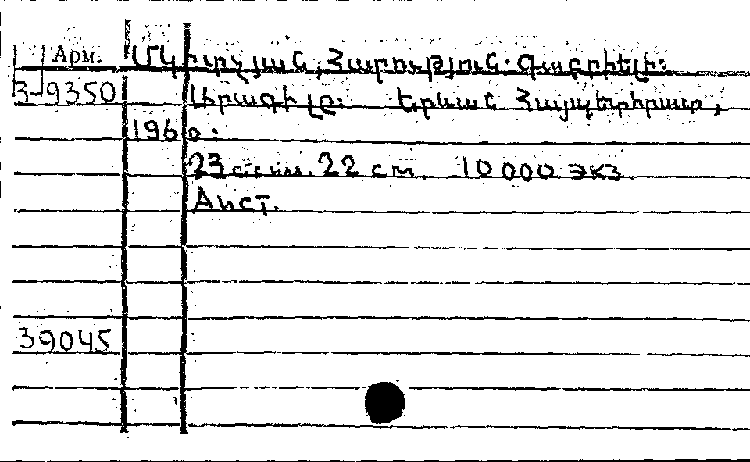 Арм. Մկրտչյան, Հարություն Գաբրիելի:
3-9350 Արագիլը. Երևան Հայպետհրատ,
1960.
23 ст. 22 см. 10 000 экз.
Аист.
39045